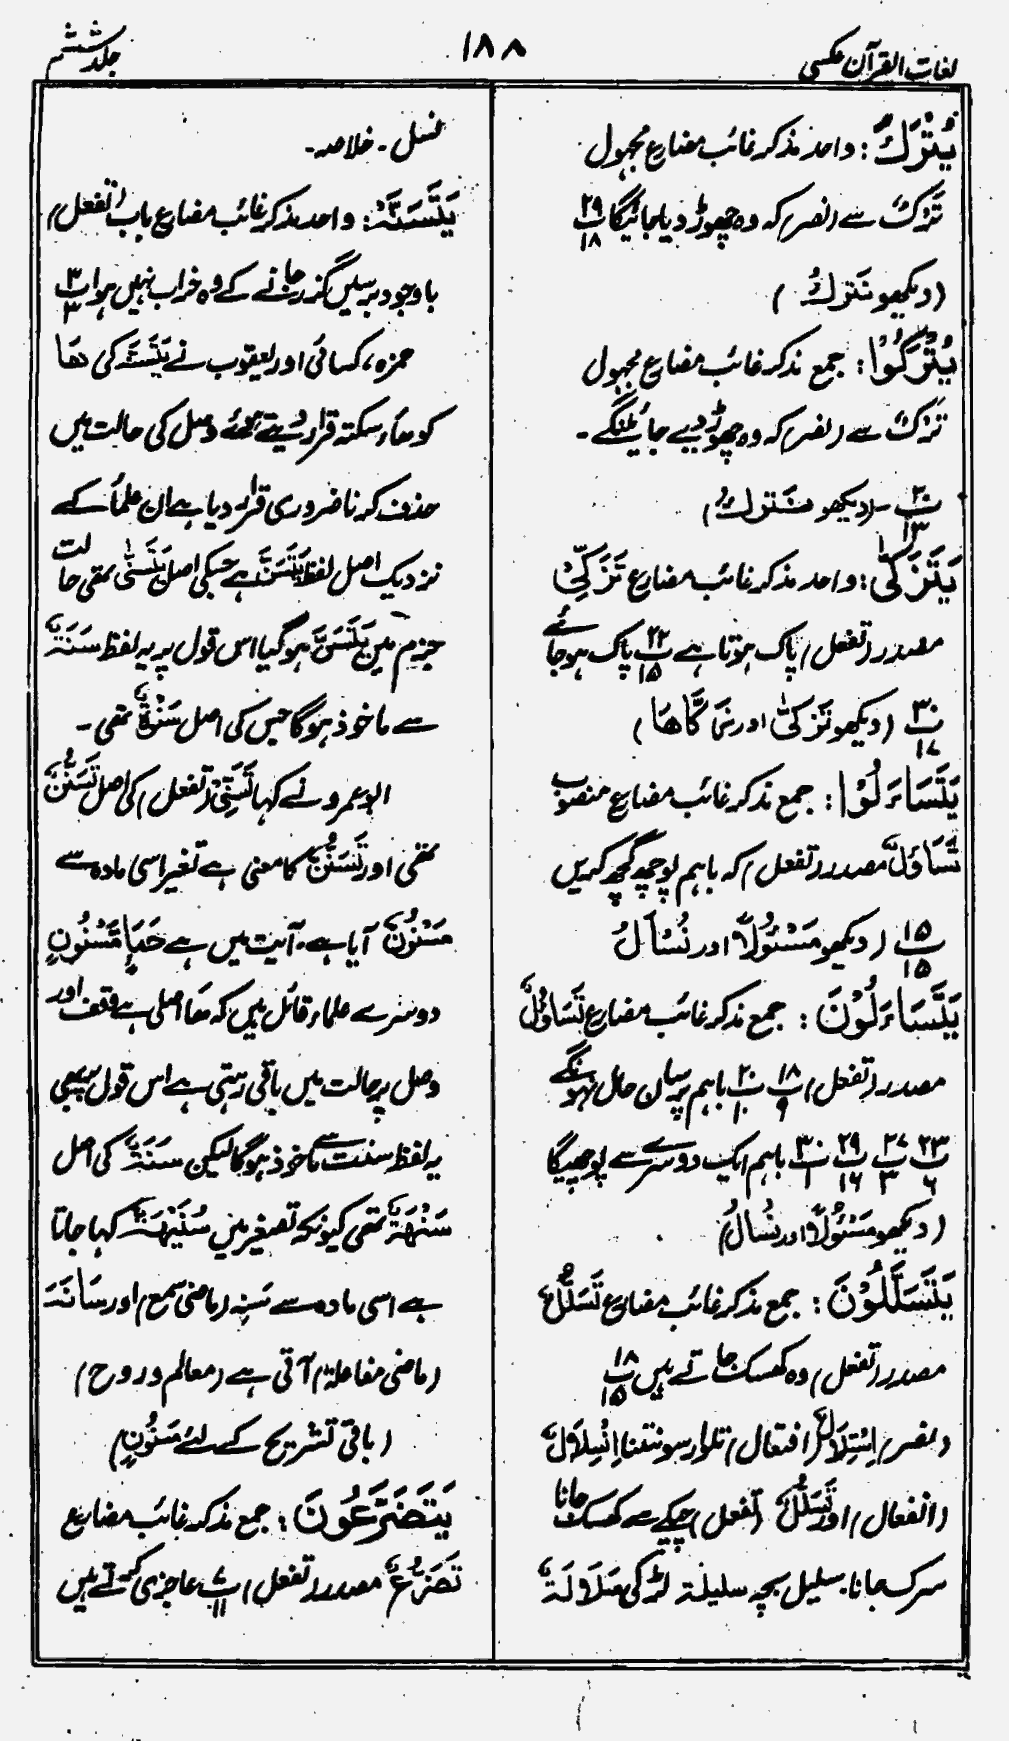 لغات القرآن عکسی
۱۸۸
جلد ششم
یُتْرَکُ: واحد مذکر غائب مضارع مجہول
تَرْکٌ سے (نصر) کہ وہ چھوڑ دیا جائیگا پ۲۹/۱۸
(دیکھو نَتْرُكُ)
یُتْرَکُوْا: جمع مذکر غائب مضارع مجہول
تَرْکٌ سے (نصر) کہ وہ چھوڑ دیے جائینگے۔
پ۲۰/۱۳ ۔ (دیکھو نَتْرُكُ)
یَتَزَکّٰی: واحد مذکر غائب مضارع تَزَکِّیْ
مصدر (تفعل) پاک ہوتا ہے پ۲۲/۱۵ پاک ہو جائے
پ۳۰/۱۷ (دیکھو تَزَکّٰی اور زَکّٰاھَا)
یَتَسَاءَلُوْا: جمع مذکر غائب مضارع منصوب
تَسَاؤُلٌ مصدر (تفعل) کہ باہم پوچھ گچھ کریں
پ۱۵/۱۵ (دیکھو مَسْئُولاً اور نُسْاَلُ
یَتَسَاءَلُوْنَ: جمع مذکر غائب مضارع تَسَاؤُلٌ
مصدر (تفعل) پ۱۸/۹ پ۲۰/۱۰ باہم پرسان حال ہونگے
پ۲۳/۶ پ۲۷/۳ پ۲۹/۱۶ پ۳۰/۱ باہم ایک دوسرے سے پوچھیگا
(دیکھو مَسْئُولاً اور نُسْالُ)
یَتَسَلَّلُوْنَ: جمع مذکر غائب مضارع تَسَلُّلٌ
مصدر (تفعل) وہ کھسک جاتے ہیں پ۱۸/۱۵
(نصر) اِسْتِلَالٌ (افتعال) تلوار سونتنا اِنْسِلَالٌ
(انفعال) اور تَسَلُّلٌ (تفعل) چپکے سے کھسک جانا
سرک جانا۔ سلیل بچہ سلیلة لڑکی سَلَالَۃٌ
نسل۔ خلاصہ۔
یَتَسَنَّہْ: واحد مذکر غائب مضارع باب (تفعل)
باوجود برسیں گذر جانے کے وہ خراب نہیں ہوا پ۳/۳
حمزہ، کسائی اور یعقوب نے یَتَسَنَّہ کی ھَا
کو ھاء سکتہ قرار دیتے ہوئے وصل کی حالت میں
حذف کرنا ضروری قرار دیا ہے ان علماء کے
نزدیک اصل لفظ یَتَسَنَّ ہے جسکی اصل یَتَسَنّٰی تھی حالت
جزم میں یَتَسَنَّ ہو گیا اس قول پر یہ لفظ سَنَۃٌ
سے ماخوذ ہوگا جس کی اصل سَنْوَۃٌ تھی۔
ابو عمرو نے کہا تَسَنِّیٌ (تفعل) کی اصل تَسَنُّنٌ
تھی اور تَسَنُّنٌ کا معنی ہے تغیر اسی مادہ سے
مَسْنُوْنٌ آیا ہے۔ آیت میں ہے حَمَإٍ مَّسْنُونٍ
دوسرے علماء قائل ہیں کہ ھَا اصلی ہے وقف اور
وصل ہر حالت میں باقی رہتی ہے اس قول پر بھی
یہ لفظ سنت سے ماخوذ ہوگا لیکن سَنَۃٌ کی اصل
سَنْھَۃٌ تھی کیونکہ تصغیر میں سُنَیْھَۃٌ کہا جاتا
ہے اسی مادہ سے سَنِہَ (ماضی سمع) اور سَانَہَ
(ماضی مفاعلۃ) آتی ہے (معالم و روح)
(باقی تشریح کے لئے مَسْنُونٍ)
یَتَضَرَّعُوْنَ: جمع مذکر غائب مضارع
تَضَرُّعٌ مصدر (تفعل) پ۷/۱۱ عاجزی کرتے ہیں